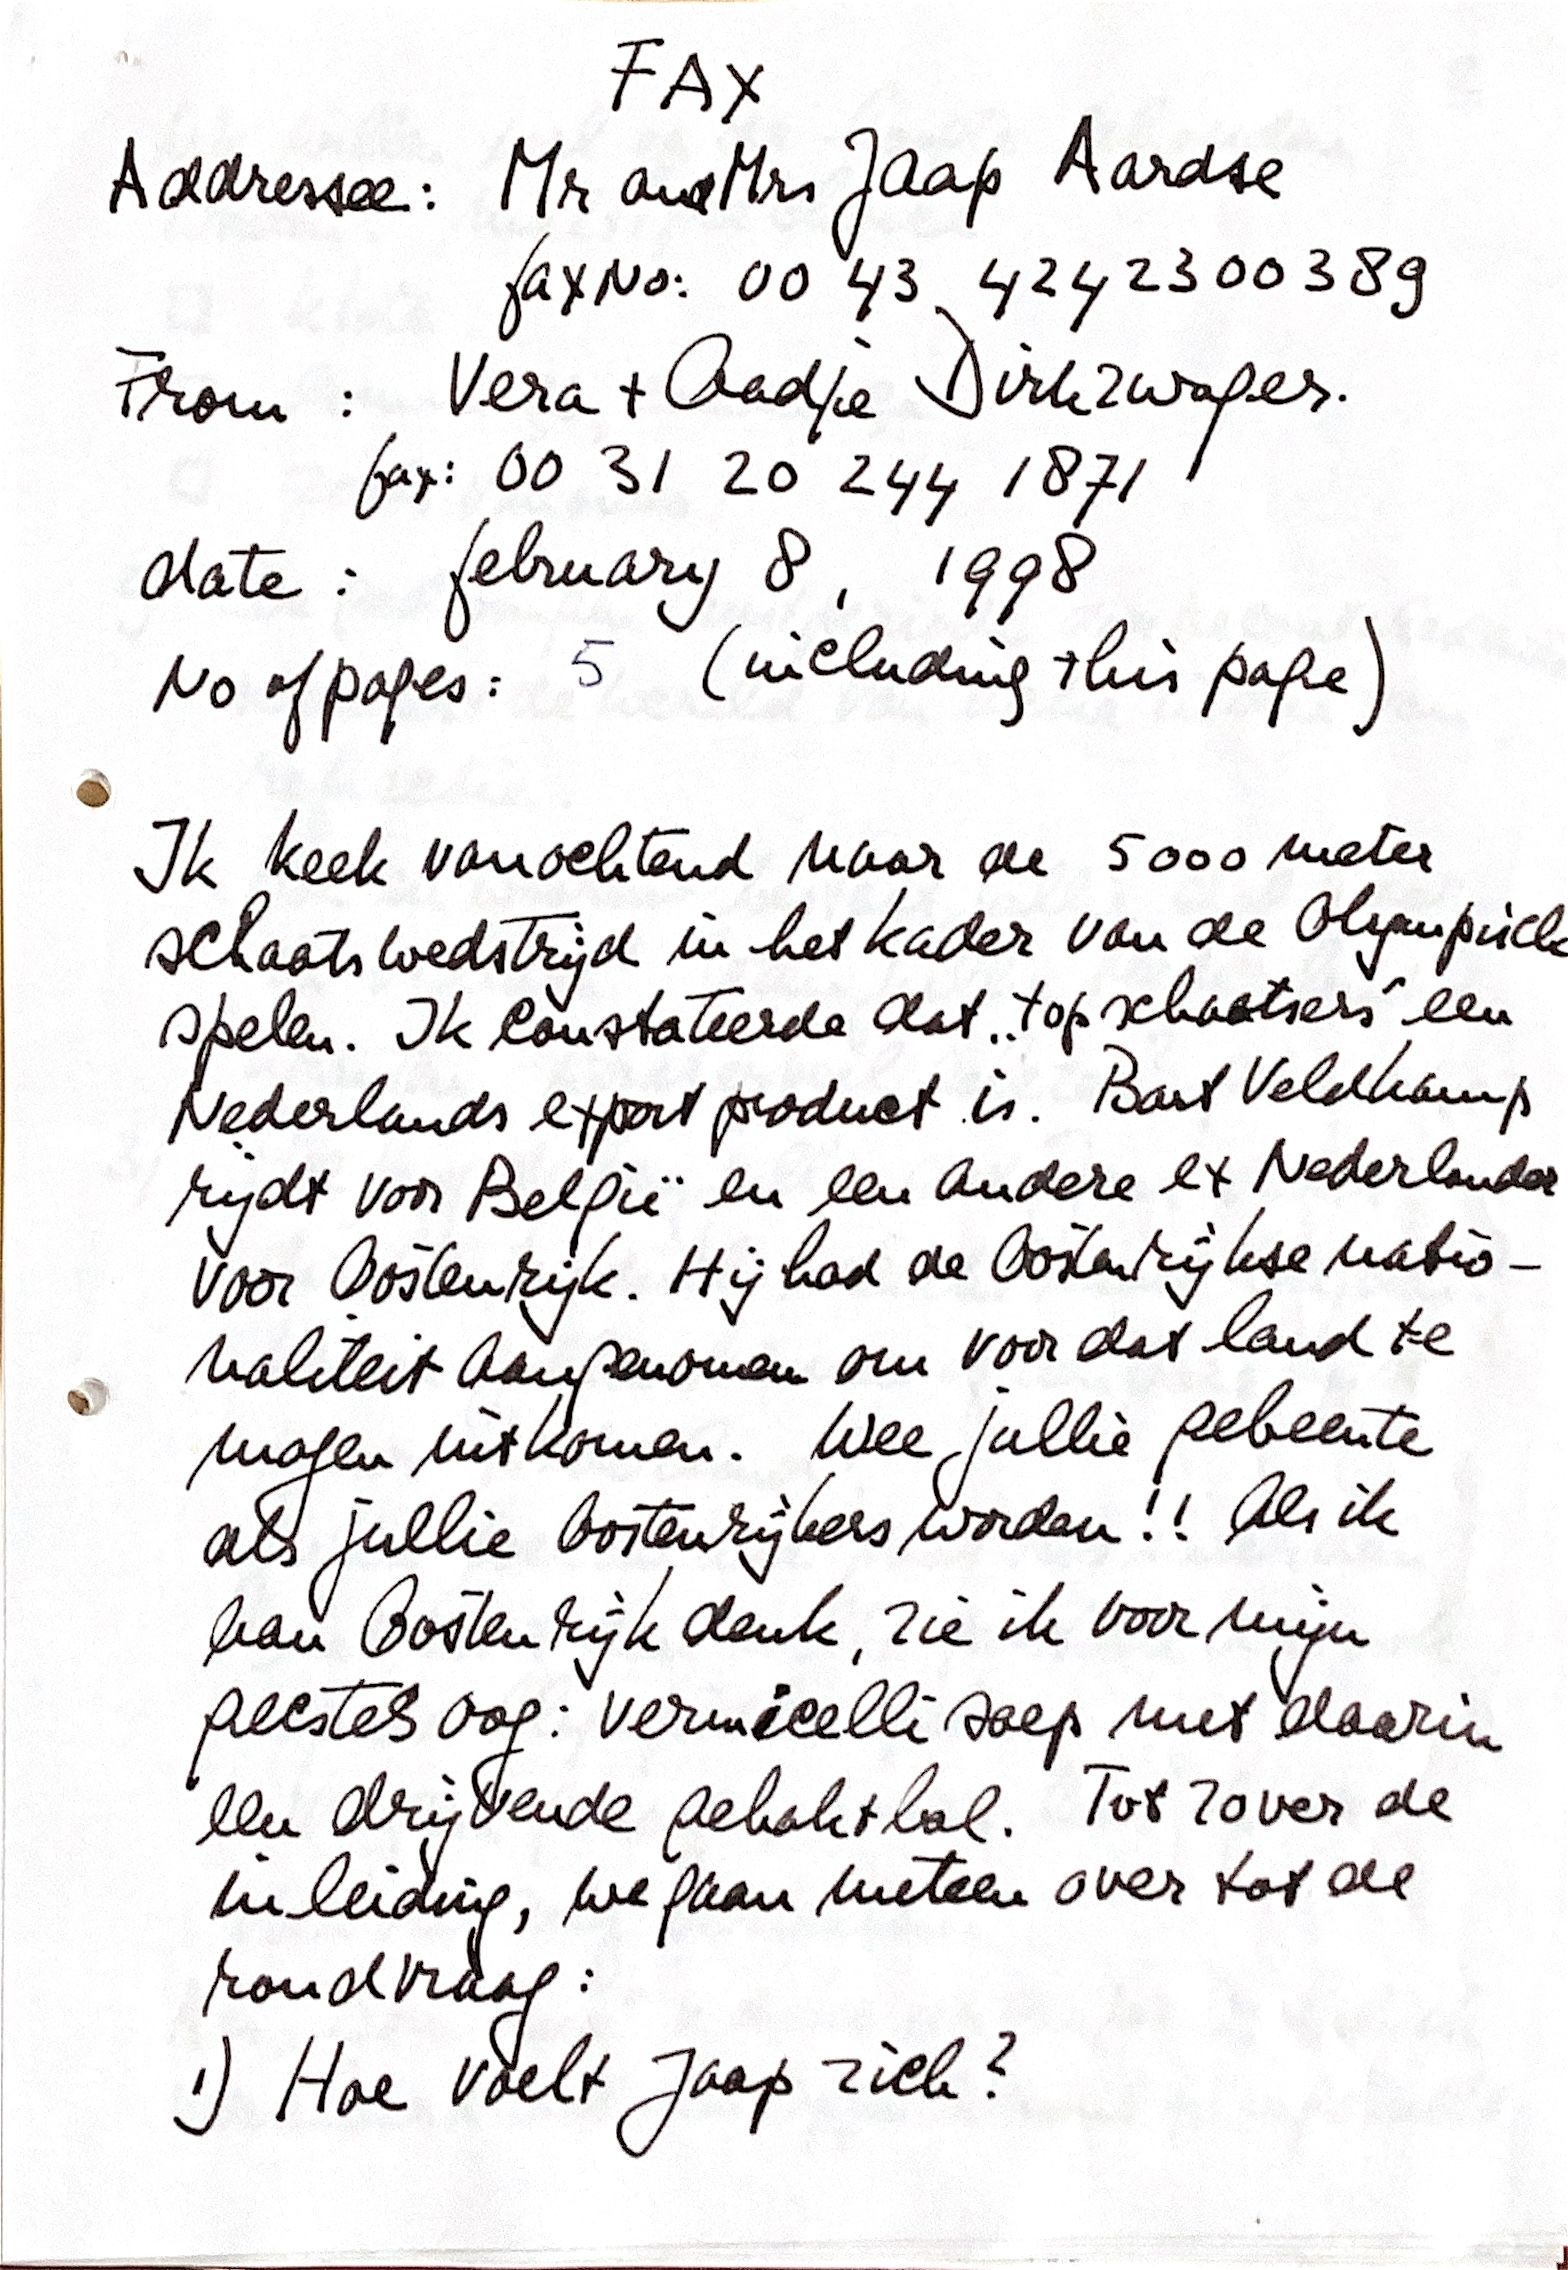 FAX
Addressee: Mr and Mrs Jaap Aardse
fax No: 00 43 4242300389
From : Vera + Aadje Dirkzwager.
fax: 00 31 20 244 1871
date : february 8, 1998
No of pages: 5 (including this page)
Ik keek vanochtend naar de 5000 meter
schaatswedstrijd in het kader van de Olympische
spelen. Ik constateerde dat „topschaatsers" een
Nederlands export product is. Bart Veldkamp
rijdt voor België en een andere ex Nederlander
voor Oostenrijk. Hij had de Oostenrijkse natio-
naliteit aangenomen om voor dat land te
mogen uitkomen. Wee jullie gebeente
als jullie Oostenrijkers worden!! Als ik
aan Oostenrijk denk, zie ik voor mijn
geestes oog: vermicelli soep met daarin
een drijvende gehaktbal. Tot zover de
inleiding, we gaan meteen over tot de
rondvraag:
1) Hoe voelt Jaap zich?